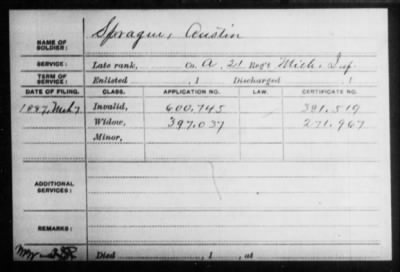 NAME OF SOLDIER: Sprague, Austin
SERVICE: Late rank, Co. A, 21 Reg't Mich. Inf.
TERM OF SERVICE: Enlisted , 1 Discharged , 1
DATE OF FILING. CLASS. APPLICATION NO. LAW. CERTIFICATE NO.
1887, Mch 7 Invalid, 600.745 381.519
Widow, 397.037 271.967
Minor,
ADDITIONAL SERVICES:
REMARKS:
Died , 1 , at